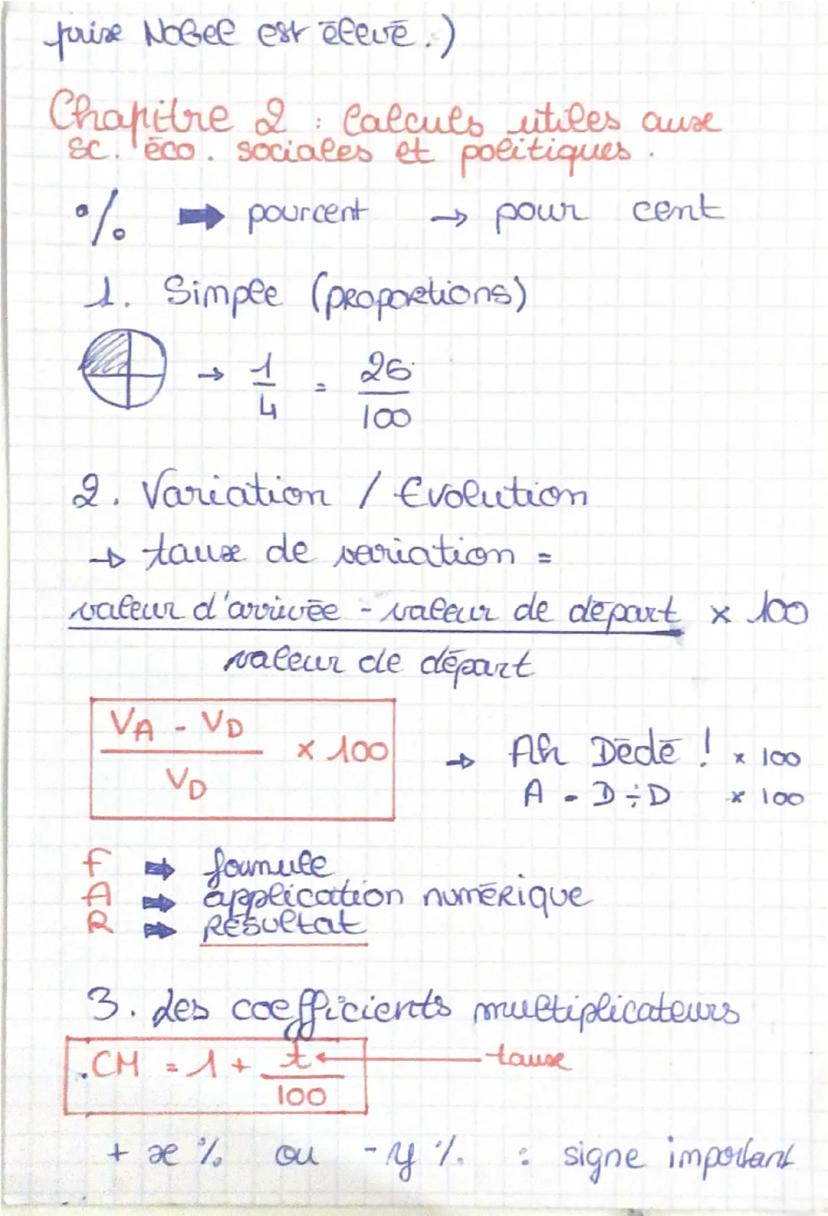 prix Nobel est élevé.)
Chapitre 2 : Calculs utiles aux
sc. éco. sociales et politiques.
% ➡ pourcent → pour cent
1. Simple (proportions)
→ 1/4 = 26/100
2. Variation / Evolution
→ taux de variation =
valeur d'arrivée - valeur de départ × 100
valeur de départ
VA - VD
VD
× 100
→ Ah Dédé ! × 100
A - D ÷ D × 100
F ➡ formule
A ➡ application numérique
R ➡ Résultat
3. des coefficients multiplicateurs
CM = 1 + t/100 ← taux
+ x % ou - y % : signe important